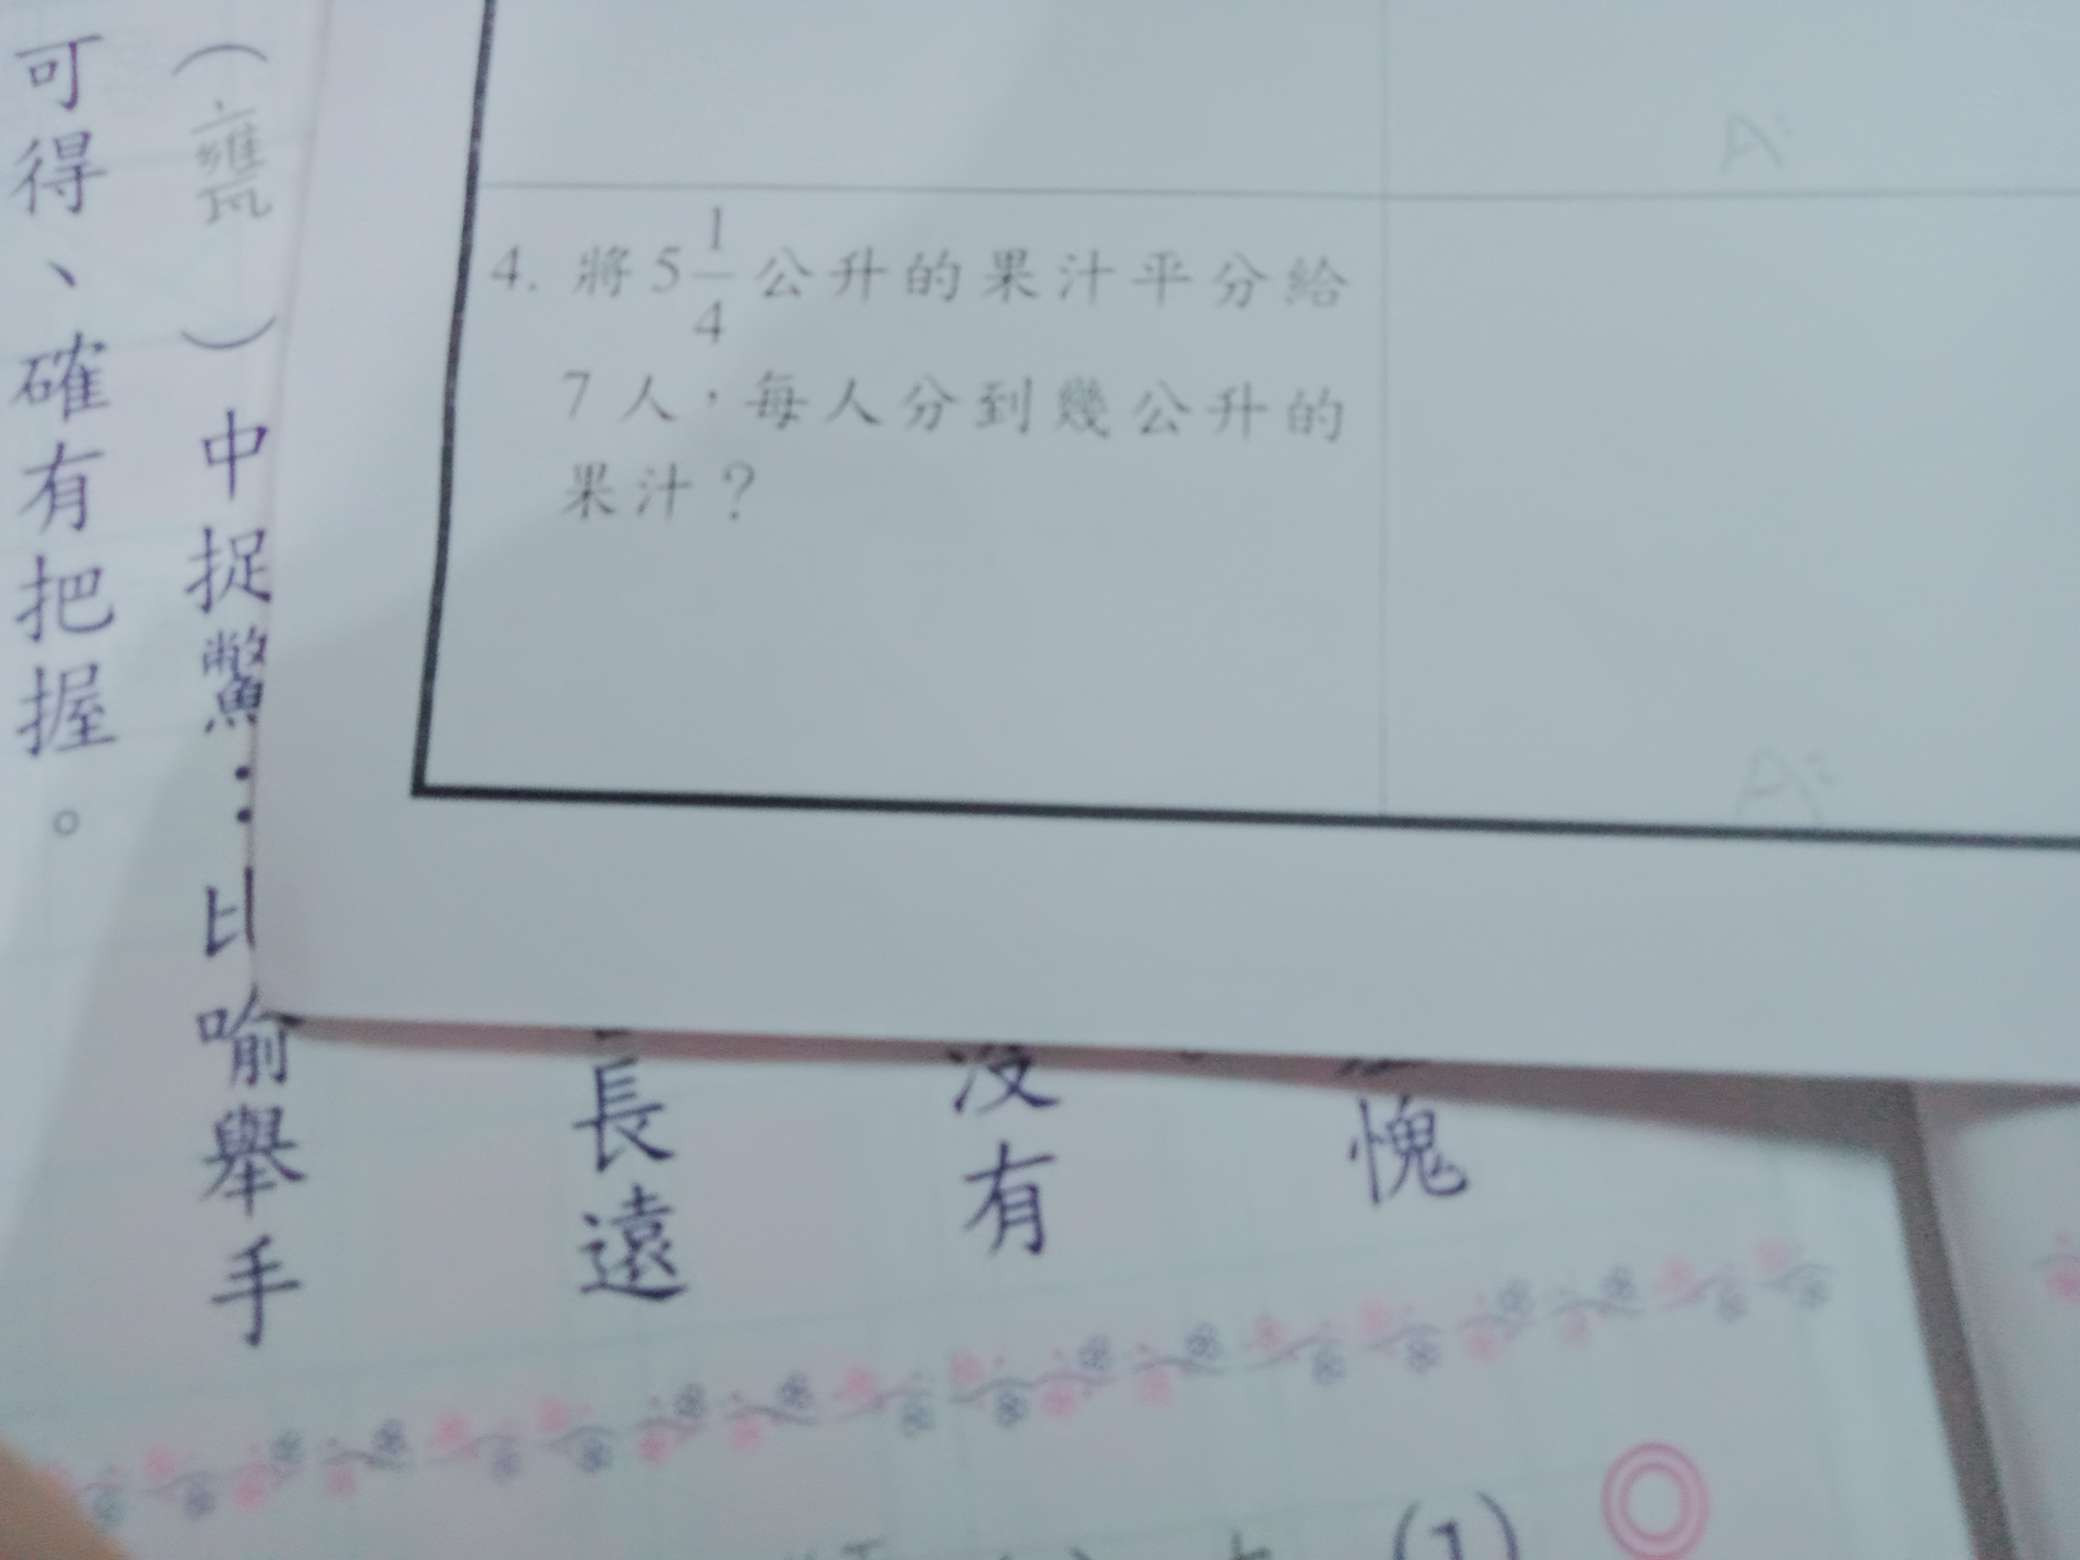 4. 將5 1/4 公升的果汁平分給
7人，每人分到幾公升的
果汁？
A:
A:
（甕）中捉鱉：比喻舉手
可得、確有把握。
長遠
沒有
愧
(1)